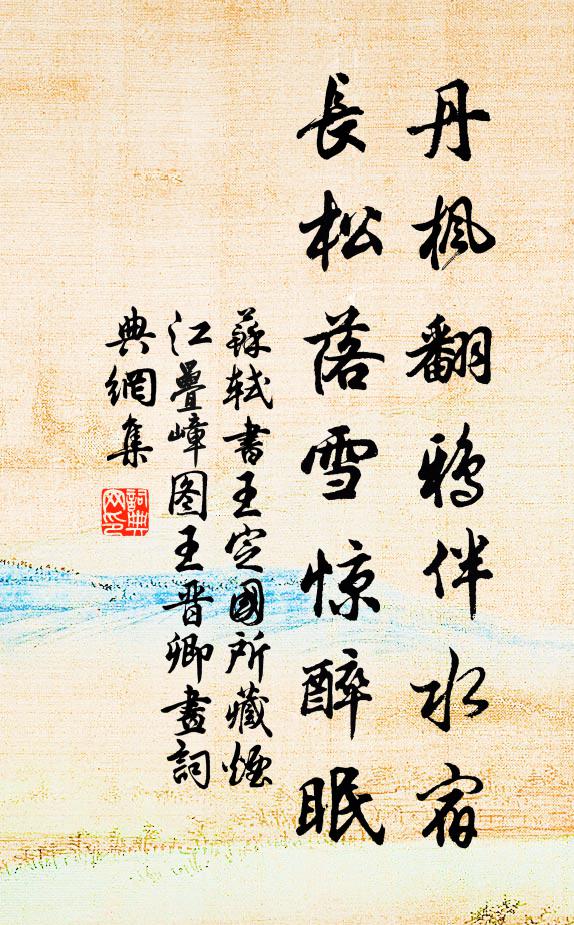 丹楓翻鴉伴水宿
長松落雪惊醉眠
蘇軾書王定國所藏煙
江疊嶂图王晋卿畫詞
典網集
詞典
网印